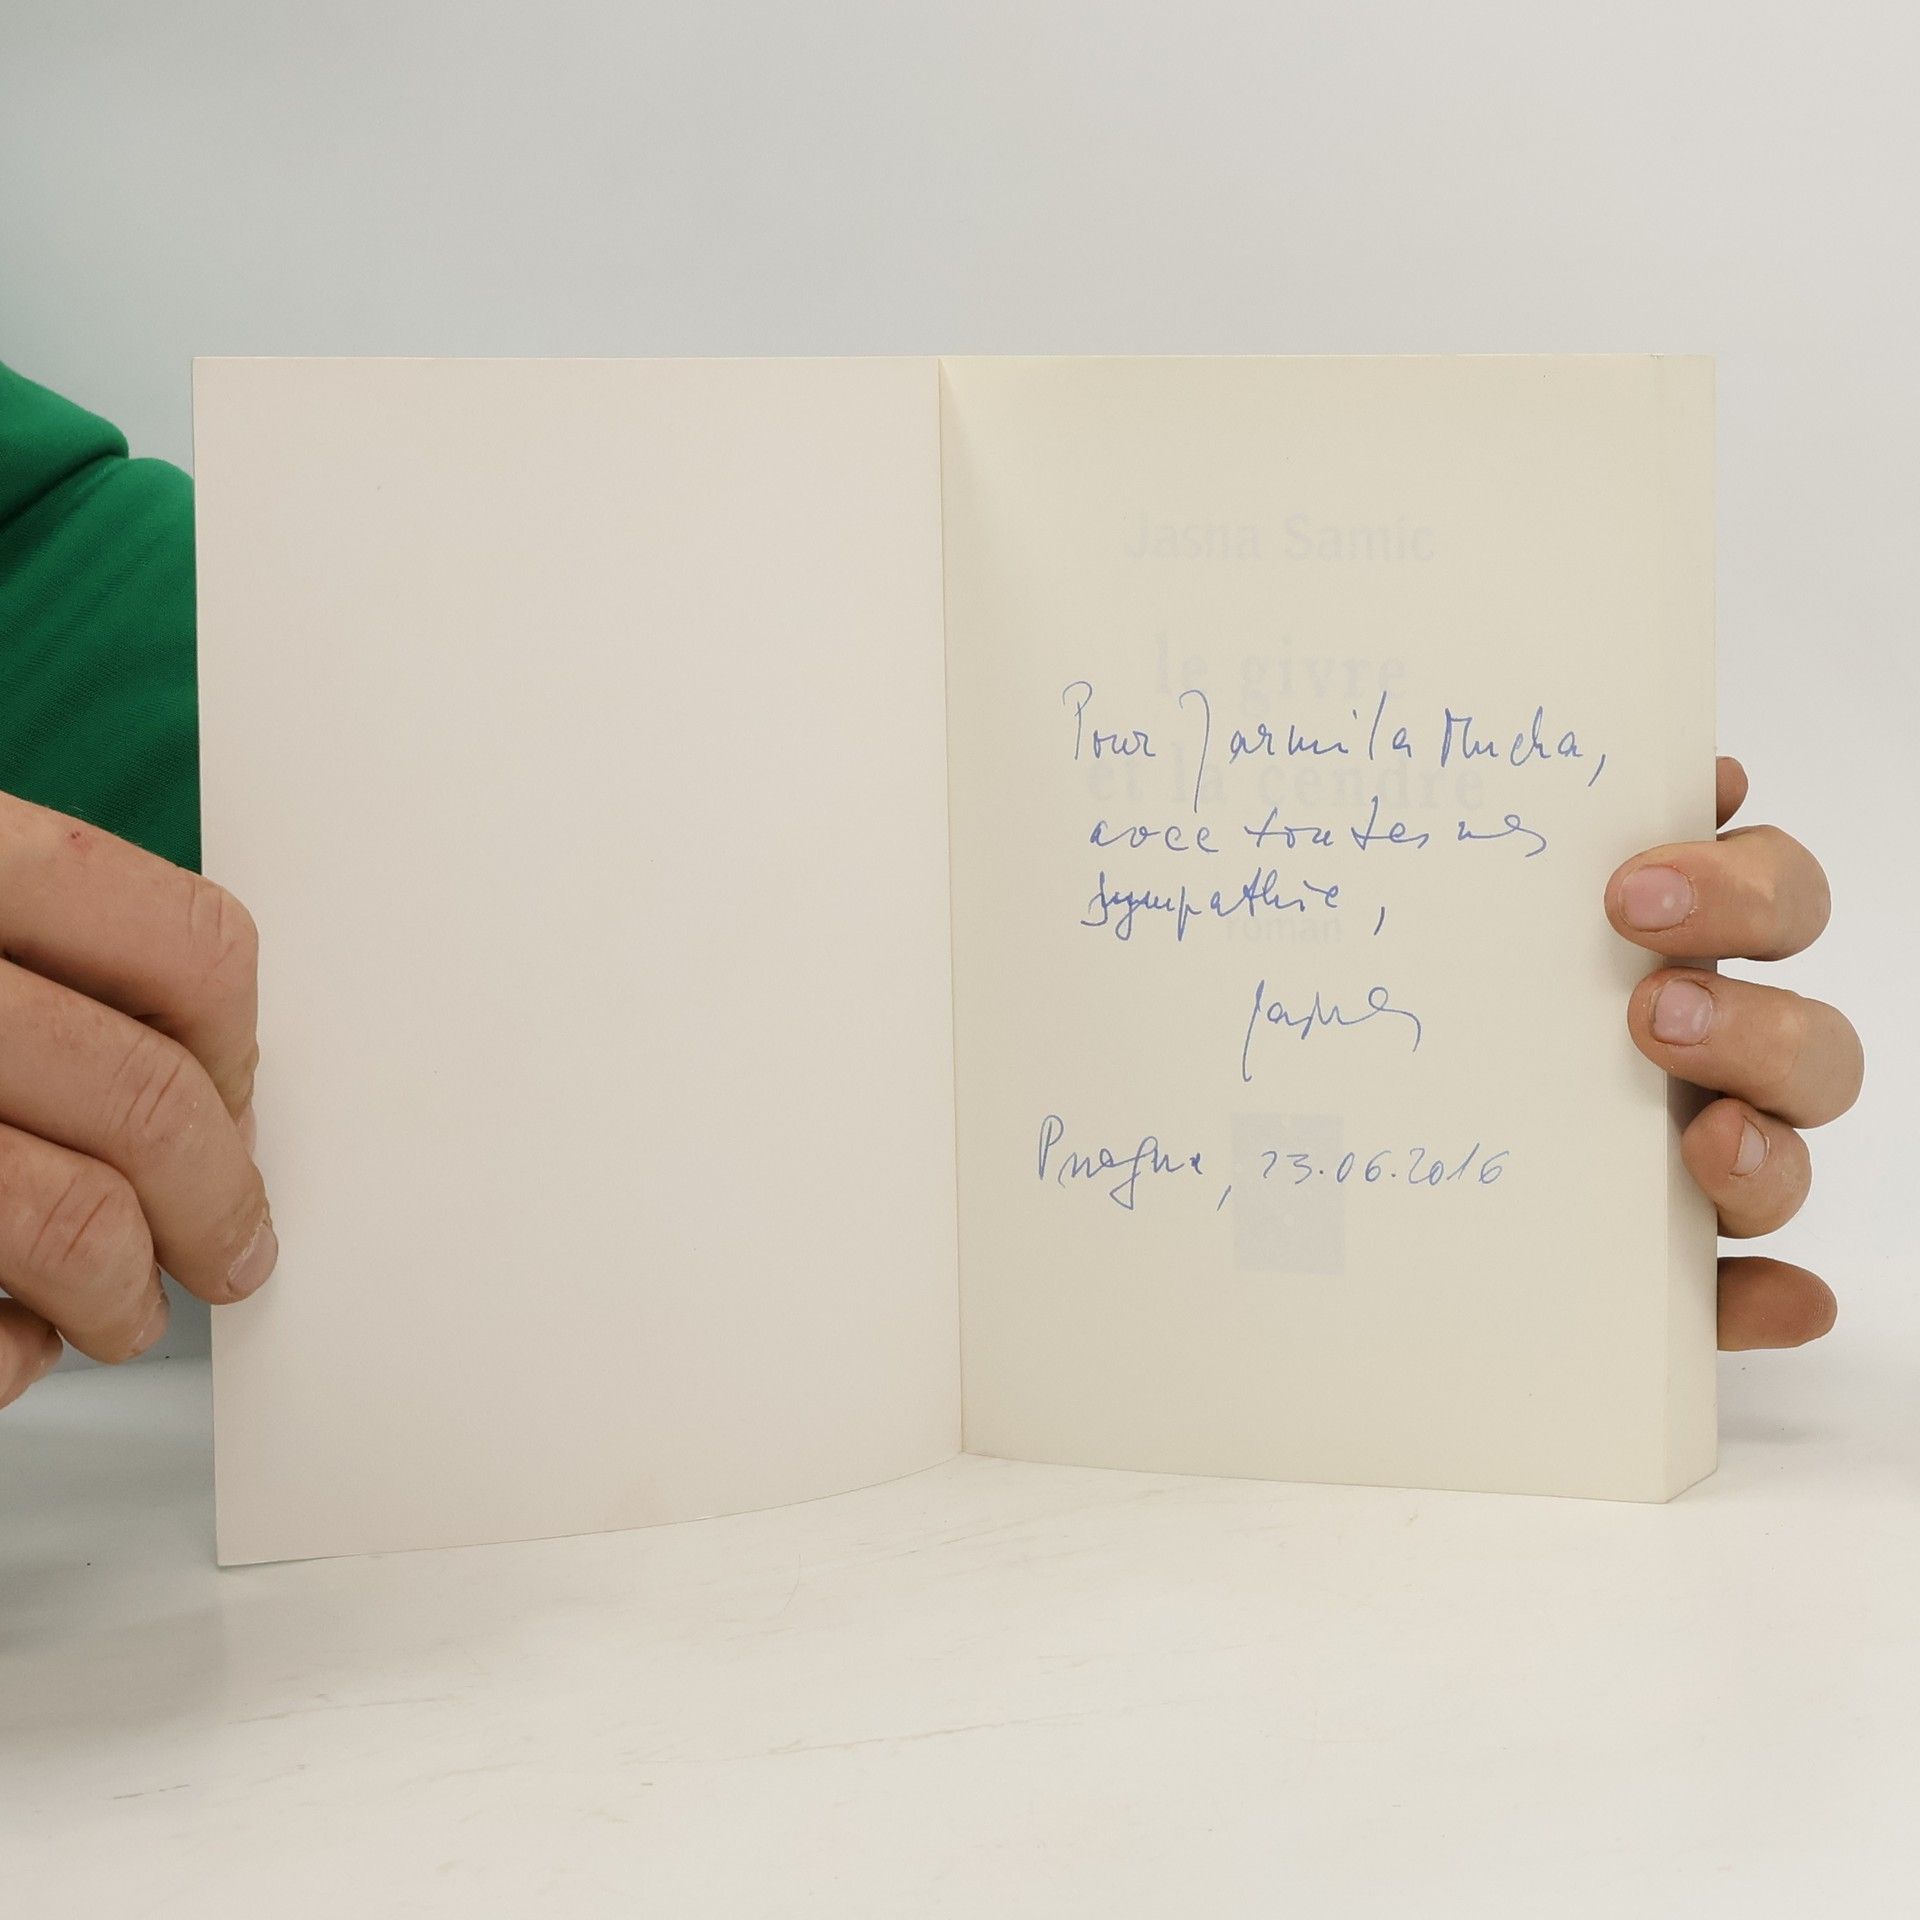 Jasna Samic
le givre
Pour Jarmila Mucha,
et la cendre
avec toutes mes
sympathie,
roman
Jasna
Prague, 23.06.2016